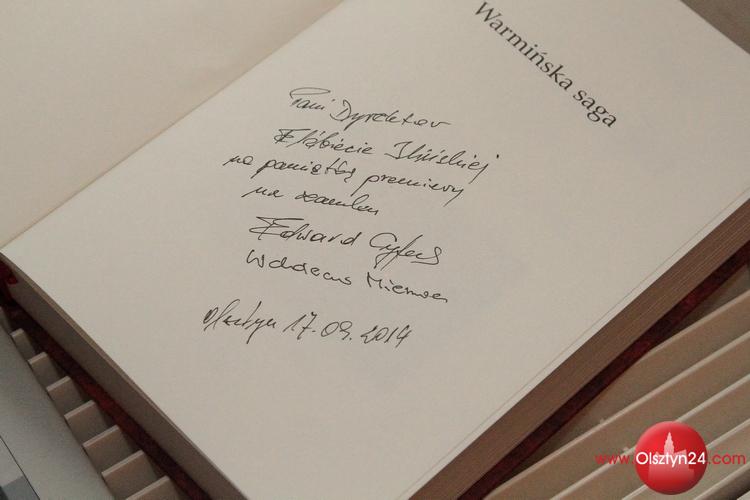 Warmińska saga
Pani Dyrektor
Elżbiecie Ilińskiej
na pamiątkę premiery
na zamku
Edward Cyfus
Olsztyn 17.09.2014
www.Olsztyn24.com